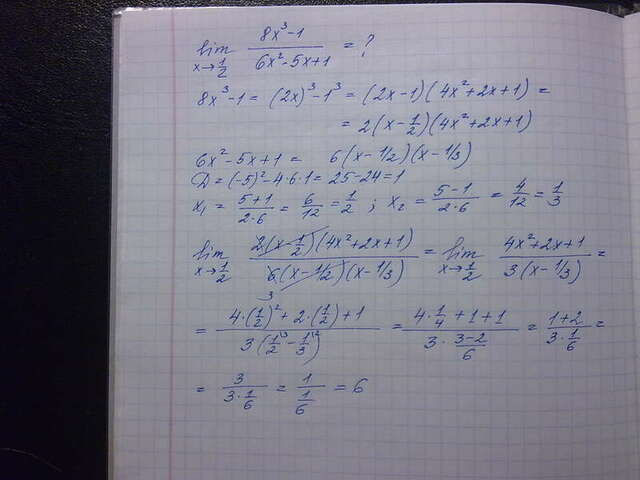 lim x→1/2 (8x³-1)/(6x²-5x+1) = ?
8x³-1 = (2x)³-1³ = (2x-1)(4x²+2x+1) =
= 2(x-1/2)(4x²+2x+1)
6x²-5x+1 = 6(x-1/2)(x-1/3)
D = (-5)²-4·6·1 = 25-24 = 1
x₁ = (5+1)/(2·6) = 6/12 = 1/2 ; x₂ = (5-1)/(2·6) = 4/12 = 1/3
lim x→1/2 (2(x-1/2)(4x²+2x+1))/(6(x-1/2)(x-1/3)) = lim x→1/2 (4x²+2x+1)/(3(x-1/3)) =
3
= (4·(1/2)²+2·(1/2)+1)/(3(1/2\³-1/3\²)) = (4·1/4+1+1)/(3·(3-2)/6) = (1+2)/(3·1/6) =
= 3/(3·1/6) = 1/(1/6) = 6